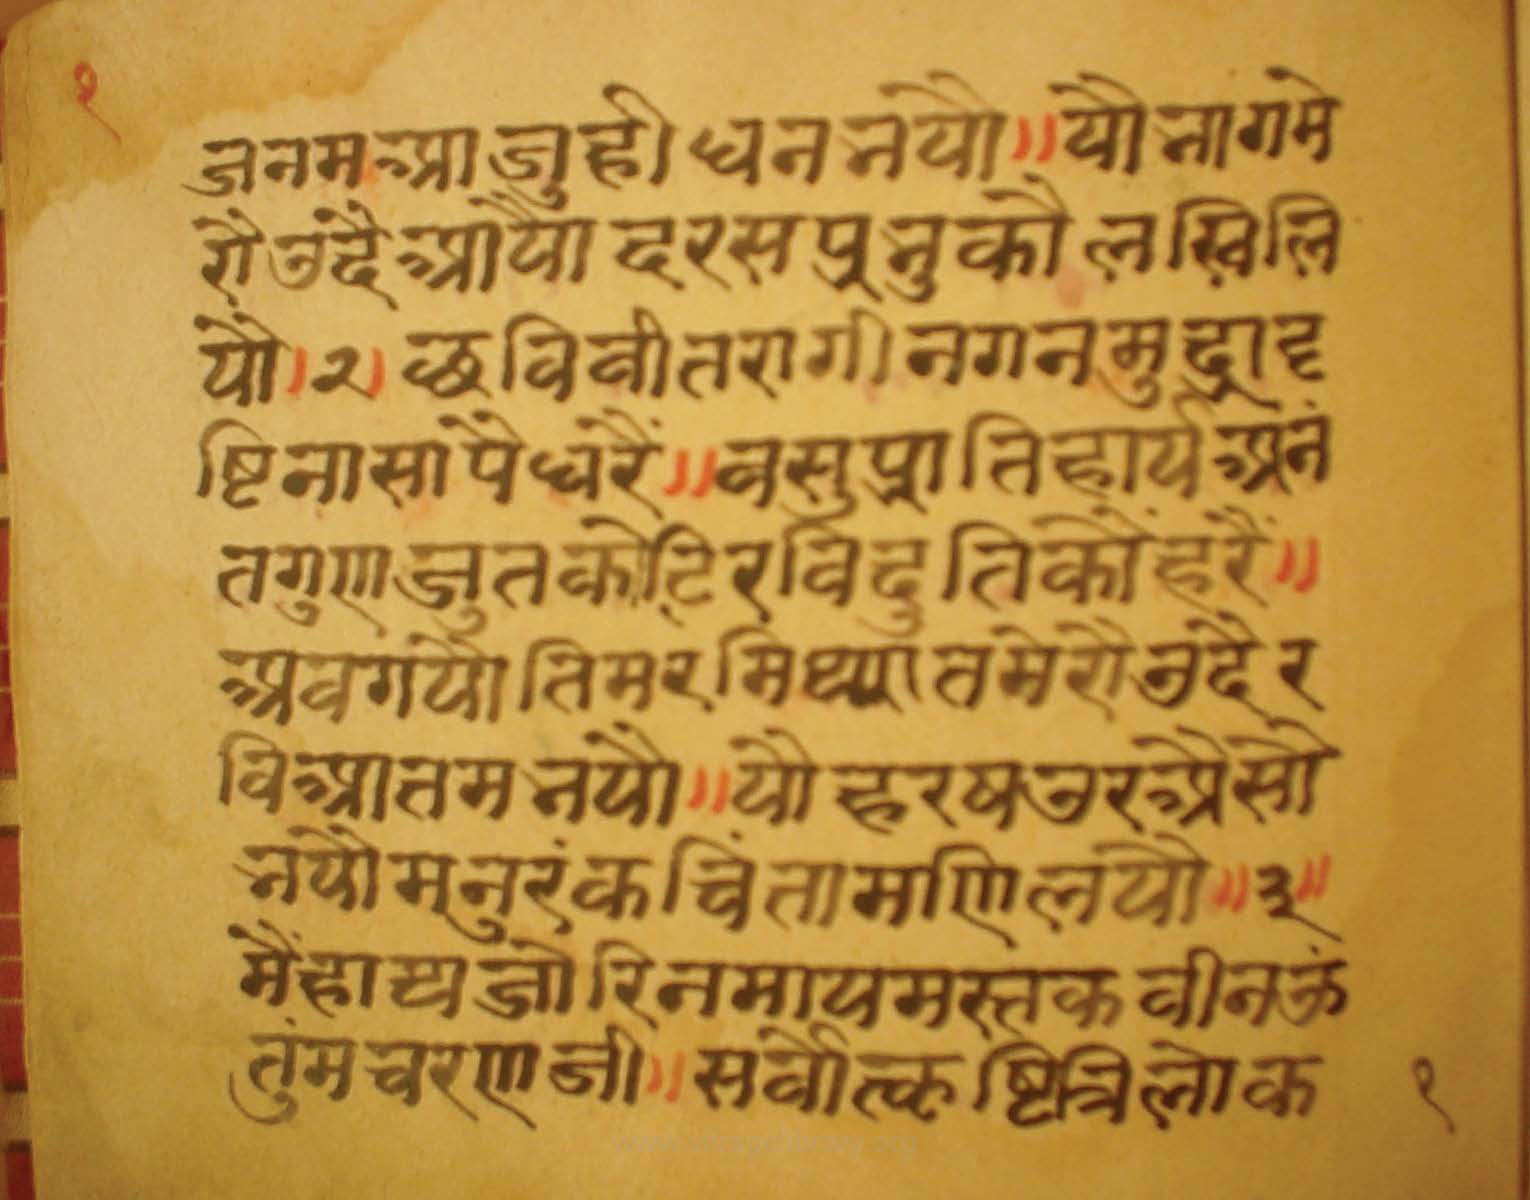 १
जनमआजुही धन नयौ॥यौ भागमे
रौ उंदै आयौ दरस प्रभुकौ लखि लि
यौ।२। छविवीतरागी नगनमुद्रादृ
ष्टिनासापै धरैं॥वसुप्रातिहार्य अनं
तगुणजुतकोटिरविदुतिकौं हरैं॥
अवगयौ तिमर मिथ्यात मेरौ उदै र
वि आतम भयौ॥यौ हरष उर अैसौ
भयौ मनु रंक चिंतामणि लयौ॥३॥
मैं हाथ जोरि नमाय मस्तक वीनऊं
तुंम चरण जी॥सर्वोत्कृष्टि त्रिलोक
१
www.vitragvani.org